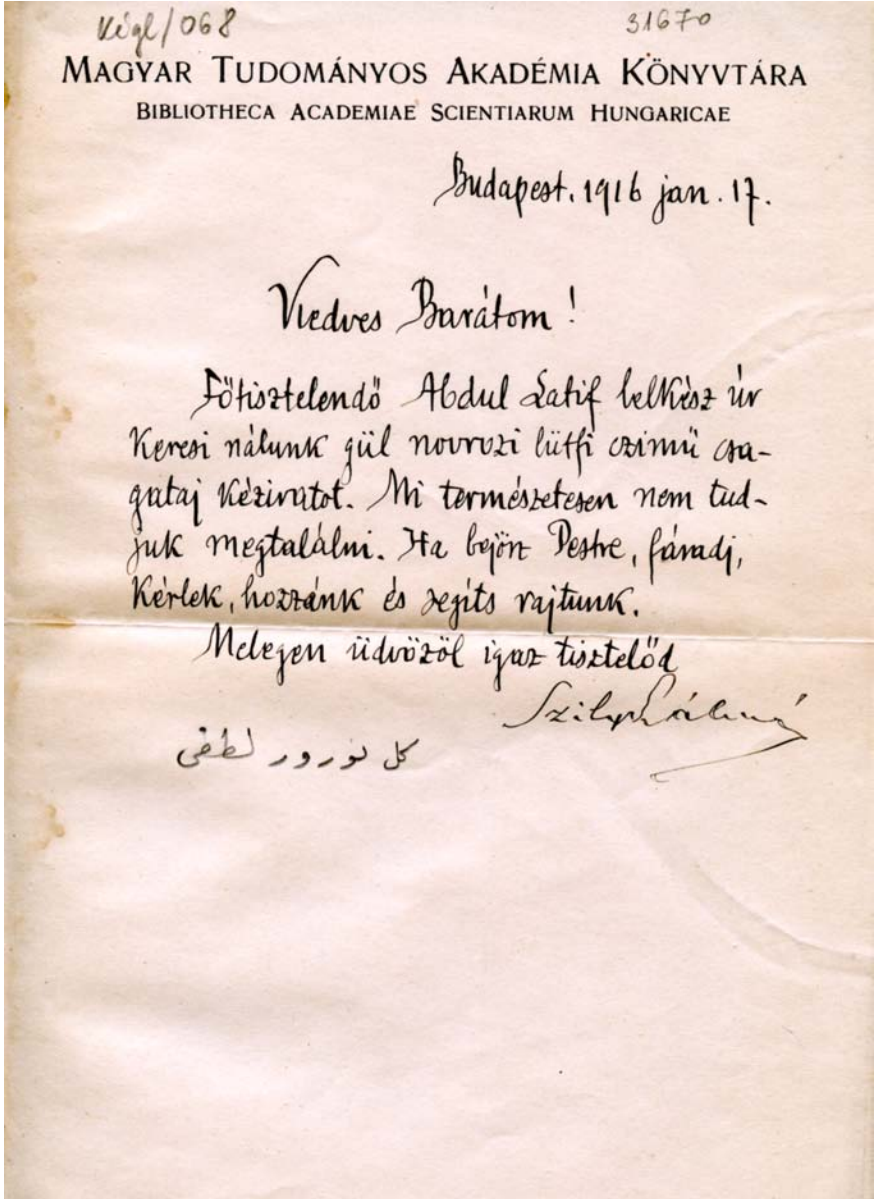 Kégl/068
31670
MAGYAR TUDOMÁNYOS AKADÉMIA KÖNYVTÁRA
BIBLIOTHECA ACADEMIAE SCIENTIARUM HUNGARICAE
Budapest. 1916 jan. 17.
Kedves Barátom!
Főtisztelendő Abdul Latif lelkész úr
keresi nálunk gül novruzi lütfi czimű csa-
gataj kéziratot. Mi természetesen nem tud-
juk megtalálni. Ha bejösz Pestre, fáradj,
kérlek, hozzánk és segíts rajtunk.
Melegen üdvözöl igaz tisztelőd
Szily Kálmán
كل نورور لطفى